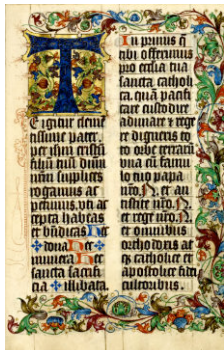 T
E igitur cleme
tissime pater.
per ihm cristū
filiū tuū dūm
nrm supplices
rogamus ac
petimus. uti ac
cepta habeas
et bñdicas hec
dona hec
munera hec
sancta sacrifi
cia illibata.
In primis q̄
tibi offerimus
pro ecclia tua
sancta cathol
ca. quā pacifi
care custodire
adunare et rege
re digneris to
to orbe terrarū
una cū famu
lo tuo papa
nrō. N. et an
tistite nrō. N.
et rege nrō. N.
et omnibus
orthodoxis at
qꝫ catholice et
apostolice fidei
cultoribus.